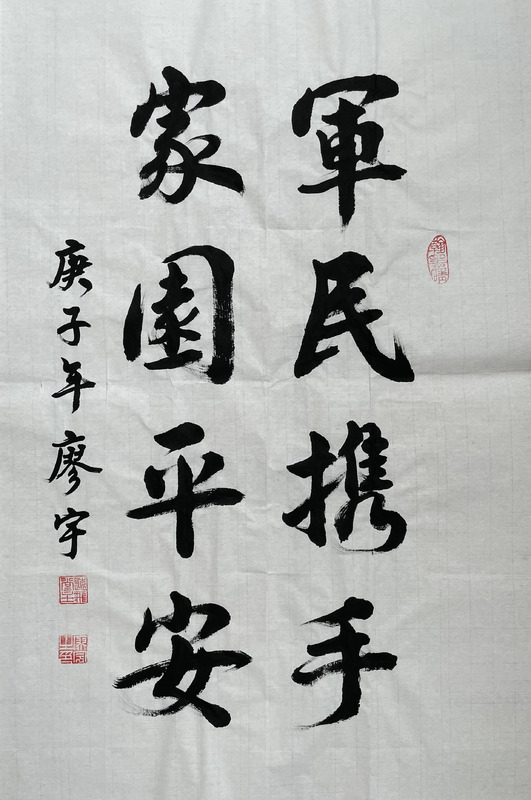 軍民携手
家園平安
庚子年廖宇